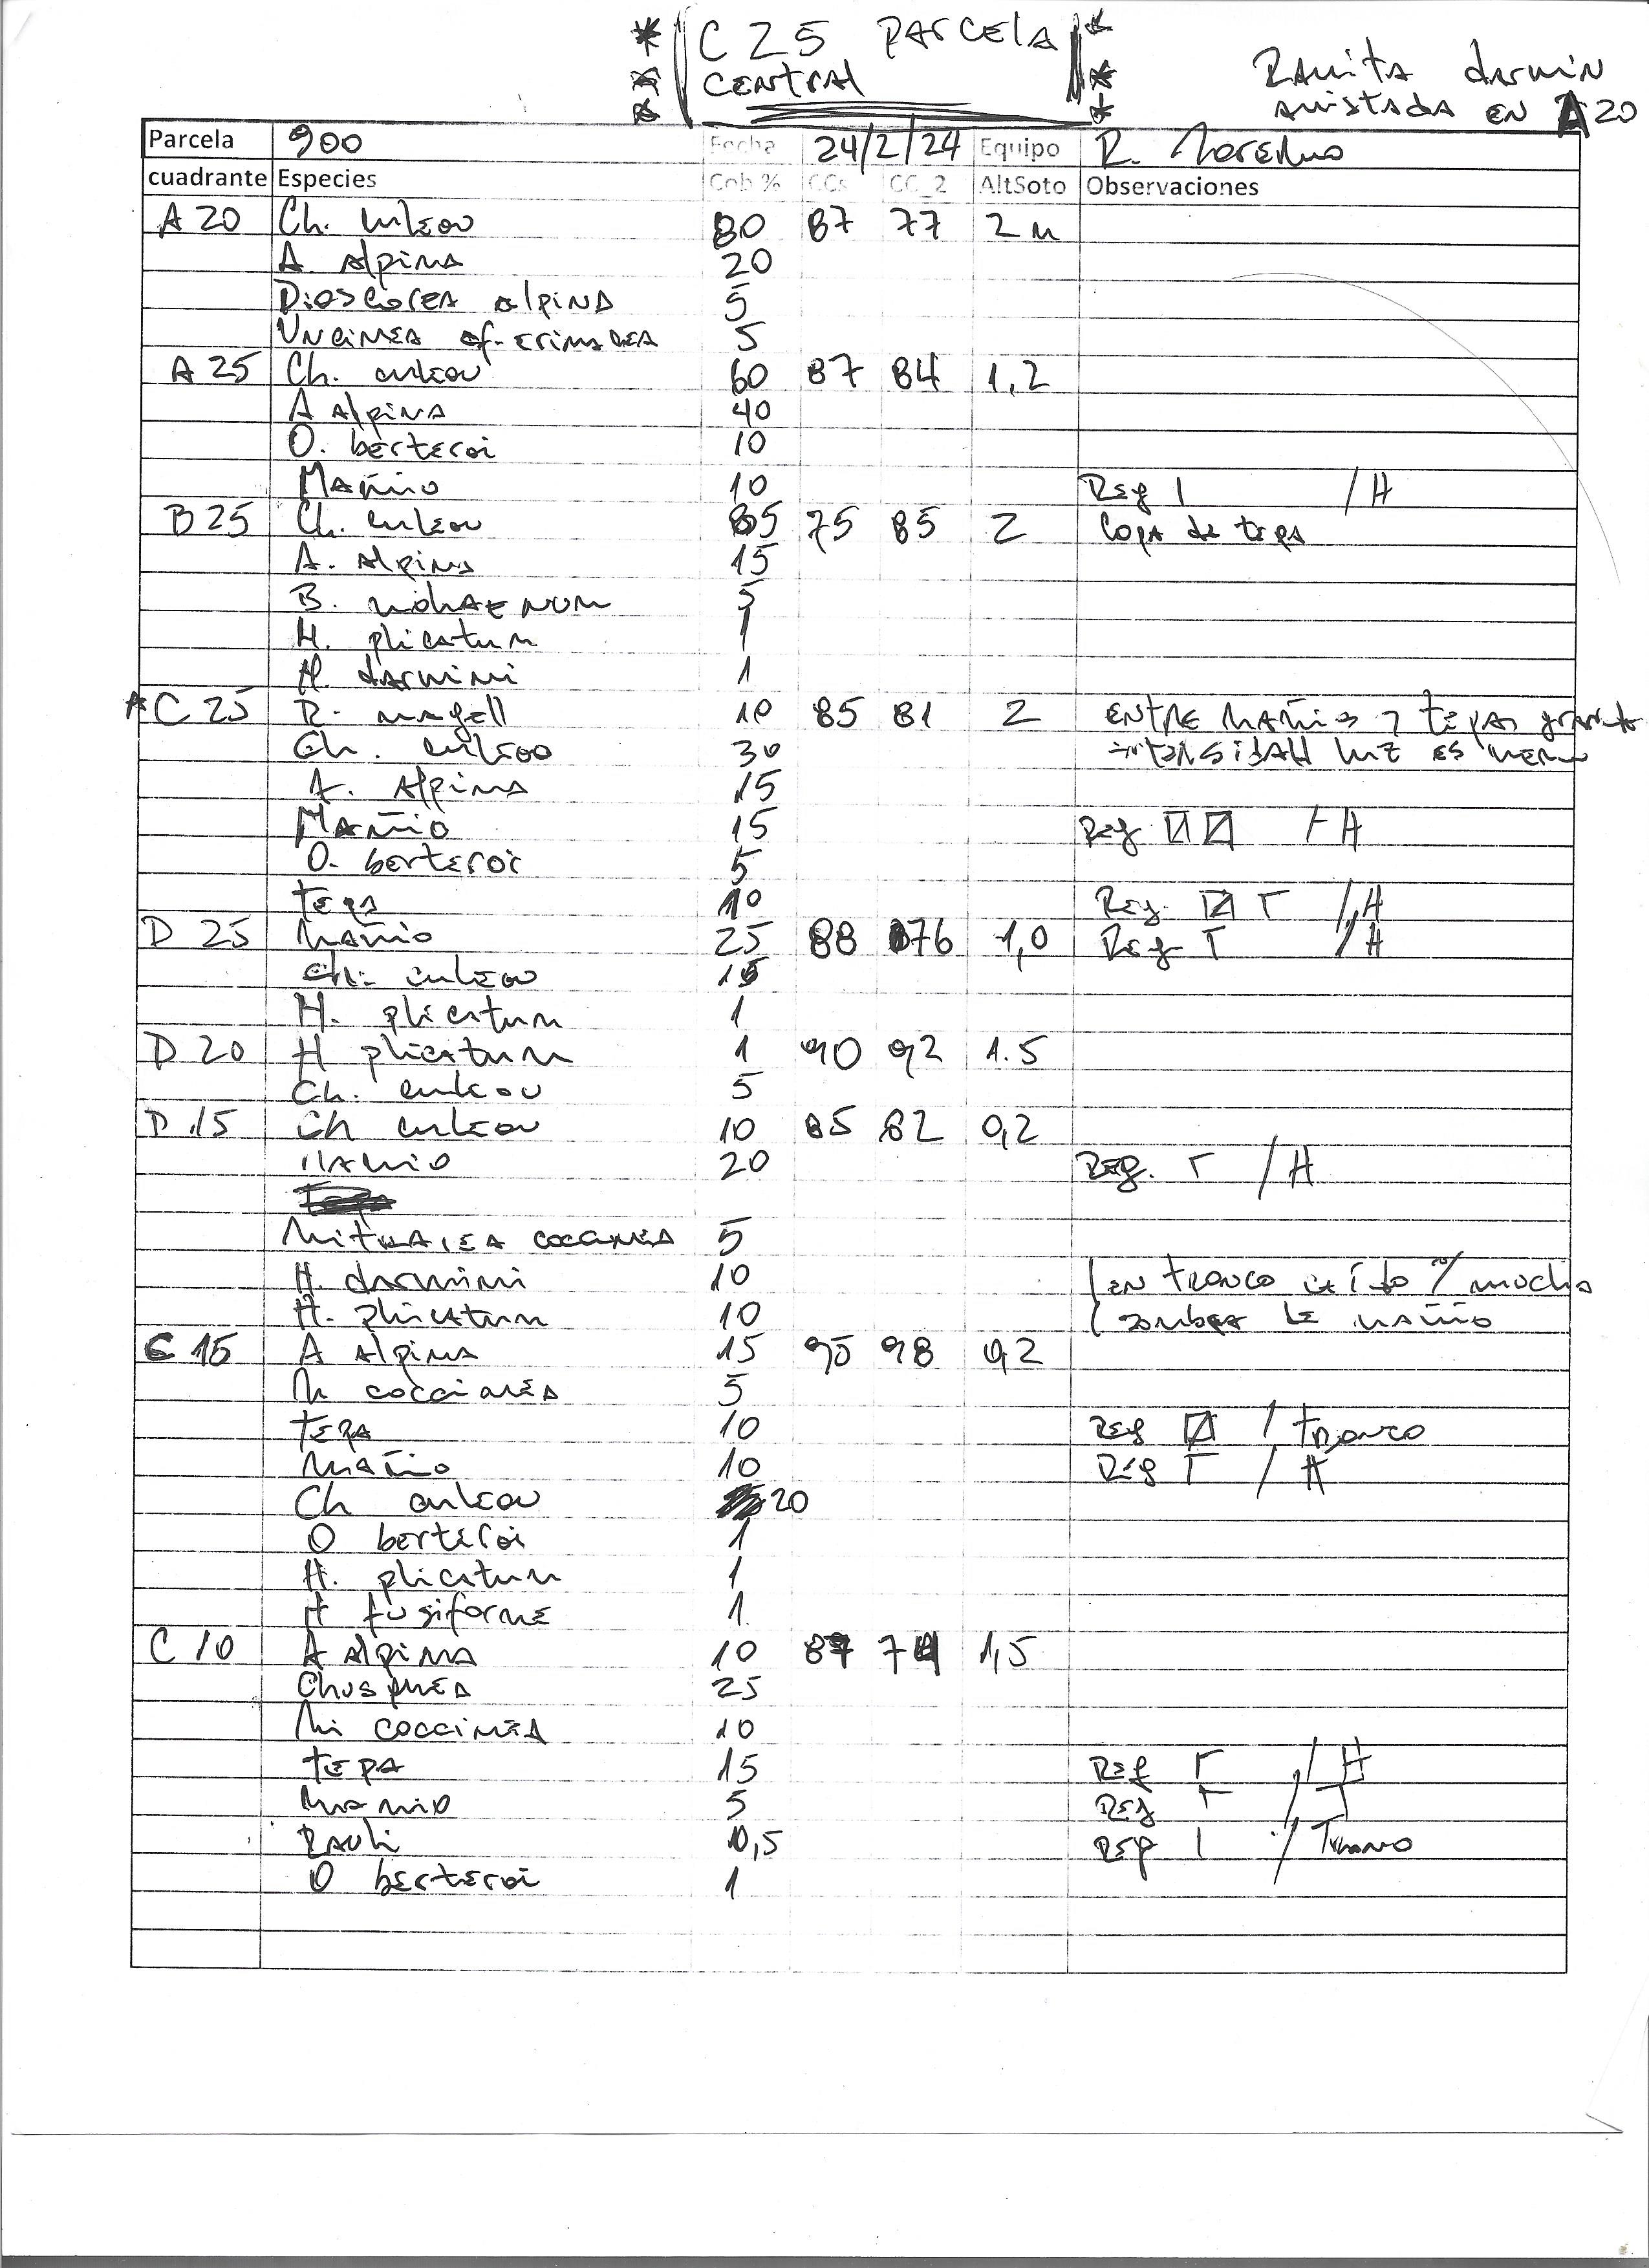 C 25 PARCELA
CENTRAL
Ranita darwin
avistada EN A20
Parcela 900 Fecha 24/2/24 Equipo R. Moreno
cuadrante Especies Cob % CCs CC_2 AltSoto Observaciones
A 20 Ch. culeou 80 87 77 2 m
A. alpina 20
Dioscorea alpina 5
Uncinea 5
A 25 Ch. culeou 60 87 84 1,2
A alpina 40
O. berteroi 10
Mañio 10 Reg I /H
B 25 Ch. culeou 85 75 85 2 Copa de tepa
A. alpina 15
B. 5
H. plicatum 1
H. darwinii 1
* C 25 R. magell 10 85 81 2 ENTRE mañios y tepas
Ch. culeou 30 intensidad luz es
A. Alpina 15
Mañio 15 Reg /H
O. berteroi 5
tepa 10 Reg. /H
D 25 Mañio 25 88 76 1,0 Reg /H
Ch. culeou 15
H. plicatum 1
D 20 H plicatum 1 90 92 1.5
Ch. culeou 5
D 15 Ch culeou 10 85 82 0,2
Mañio 20 Reg. /H
Mitraria coccinea 5
H. darwinii 10 EN TRONCO caído mucha
H. plicatum 10 sombra de mañio
C 15 A alpina 15 95 98 0,2
M coccinea 5
tepa 10 Reg / tronco
mañio 10 Reg / H
Ch culeou 20
O berteroi 1
H. plicatum 1
H fusiforme 1
C 10 A alpina 10 87 74 1,5
Chusquea 25
Mi coccinea 10
tepa 15 Reg / H
mañio 5 Reg
Rauli 0,5 Reg I / Tronco
O berteroi 1